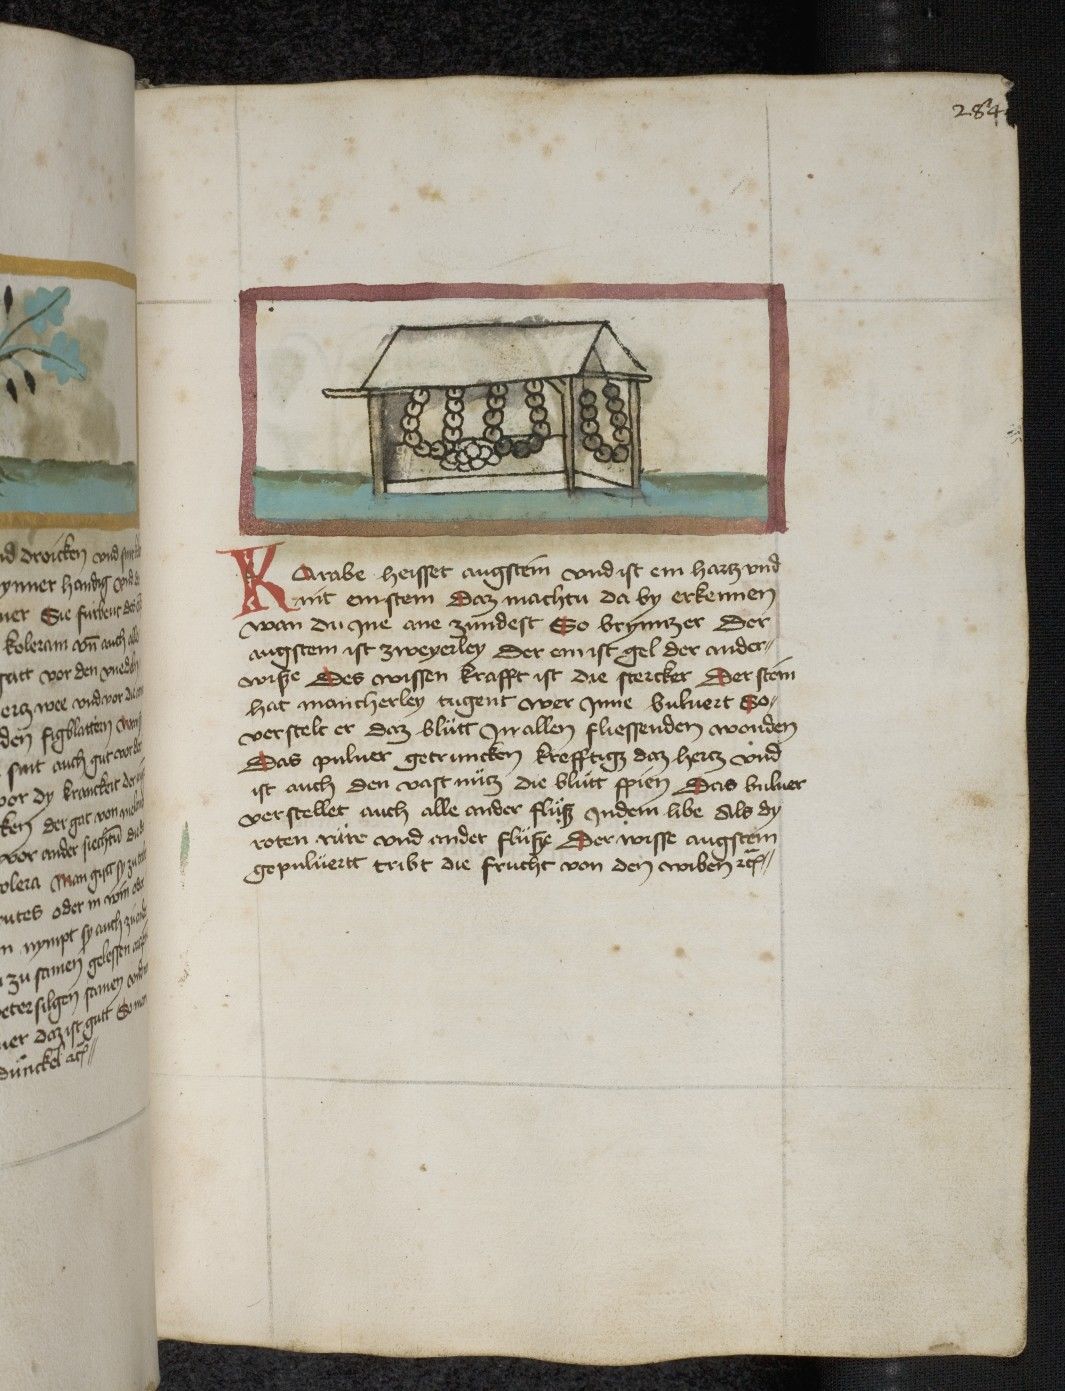 284
Karabe heisset augstein vnd ist ein hartz vnd
nit ein stein Daz machtu da by erkennen
wan du Jne ane zündest So brynntzer Der
augstein ist zweyerley Der ein ist gel der ander
wisze Des wissen krafft ist die stercker Der stein
hat mancherley tugent wer Jnne buluert So
verstelt er daz blütt Jn allen fliessenden wonden
Das puluer getruncken krefftigz daz hertz vnd
ist auch den vast nütz die blütt spien Das buluer
verstellet auch alle ander flüsz Jn dem libe Als dy
roten rüre vnd ander flüsze Der wisse augstein
gepülüertt tribt die frucht von den wiben
nd droicken vnd
Sie furbent
koleram vn auch
gutt vor den
vnd vor
den figblattern
sint auch gut vor
vor dy kranckeit der
ken der gat von
vor ander siechtu
olera Man gytt sy zu
utes oder in win
n nympt sy auch
zu samen gelessen
petersilgen samen vnd
uer daz ist gutt So
dünckel